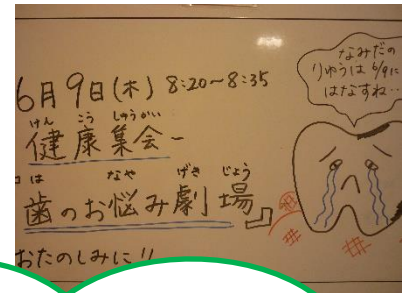 6月9日(木) 8:20~8:35
けん こう しゅうかい
健康集会~
は なや げき じょう
歯のお悩み劇場』
おたのしみに!!
なみだの
りゆうは 6/9に
はなすね‥